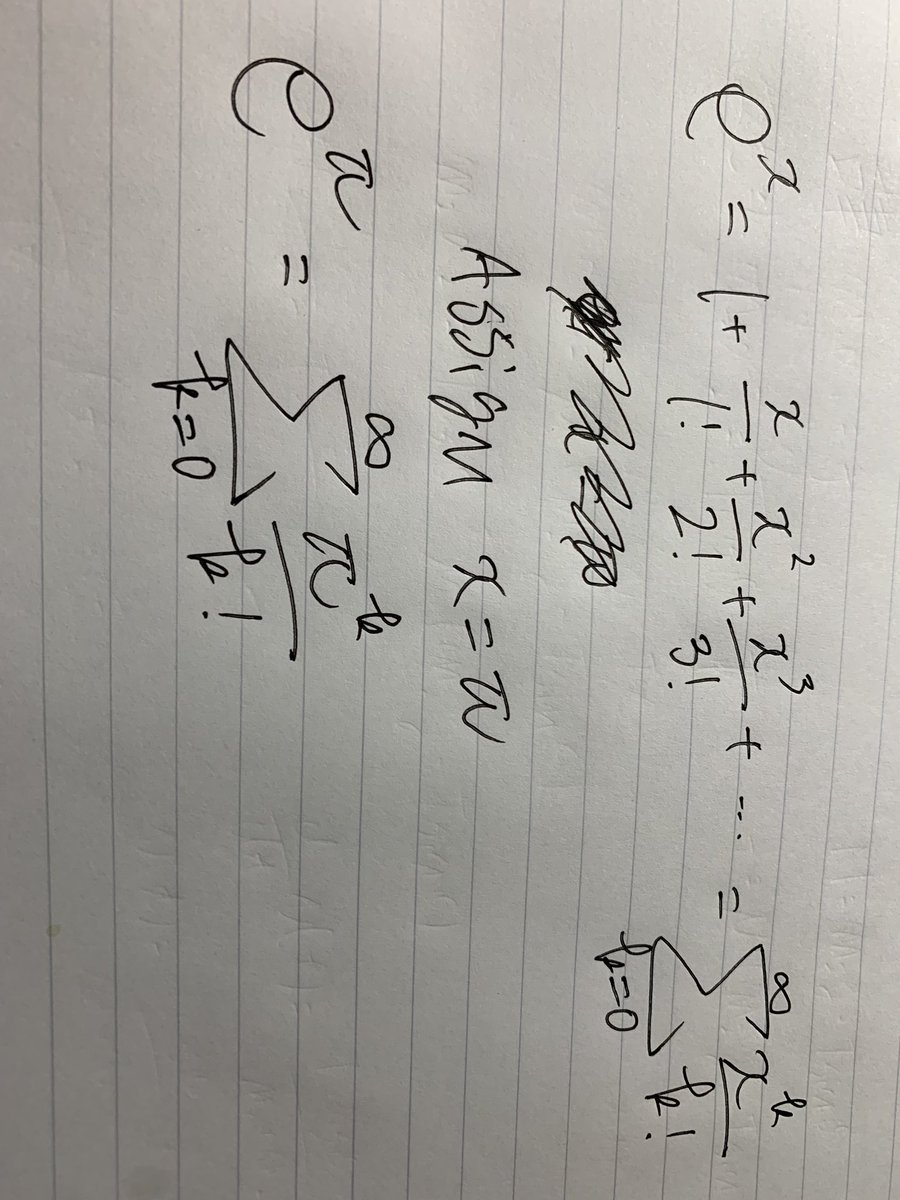 e^x = 1 + x/1! + x^2/2! + x^3/3! + ... = ∑_{k=0}^{∞} x^k/k!
Assign x = π
e^π = ∑_{k=0}^{∞} π^k/k!